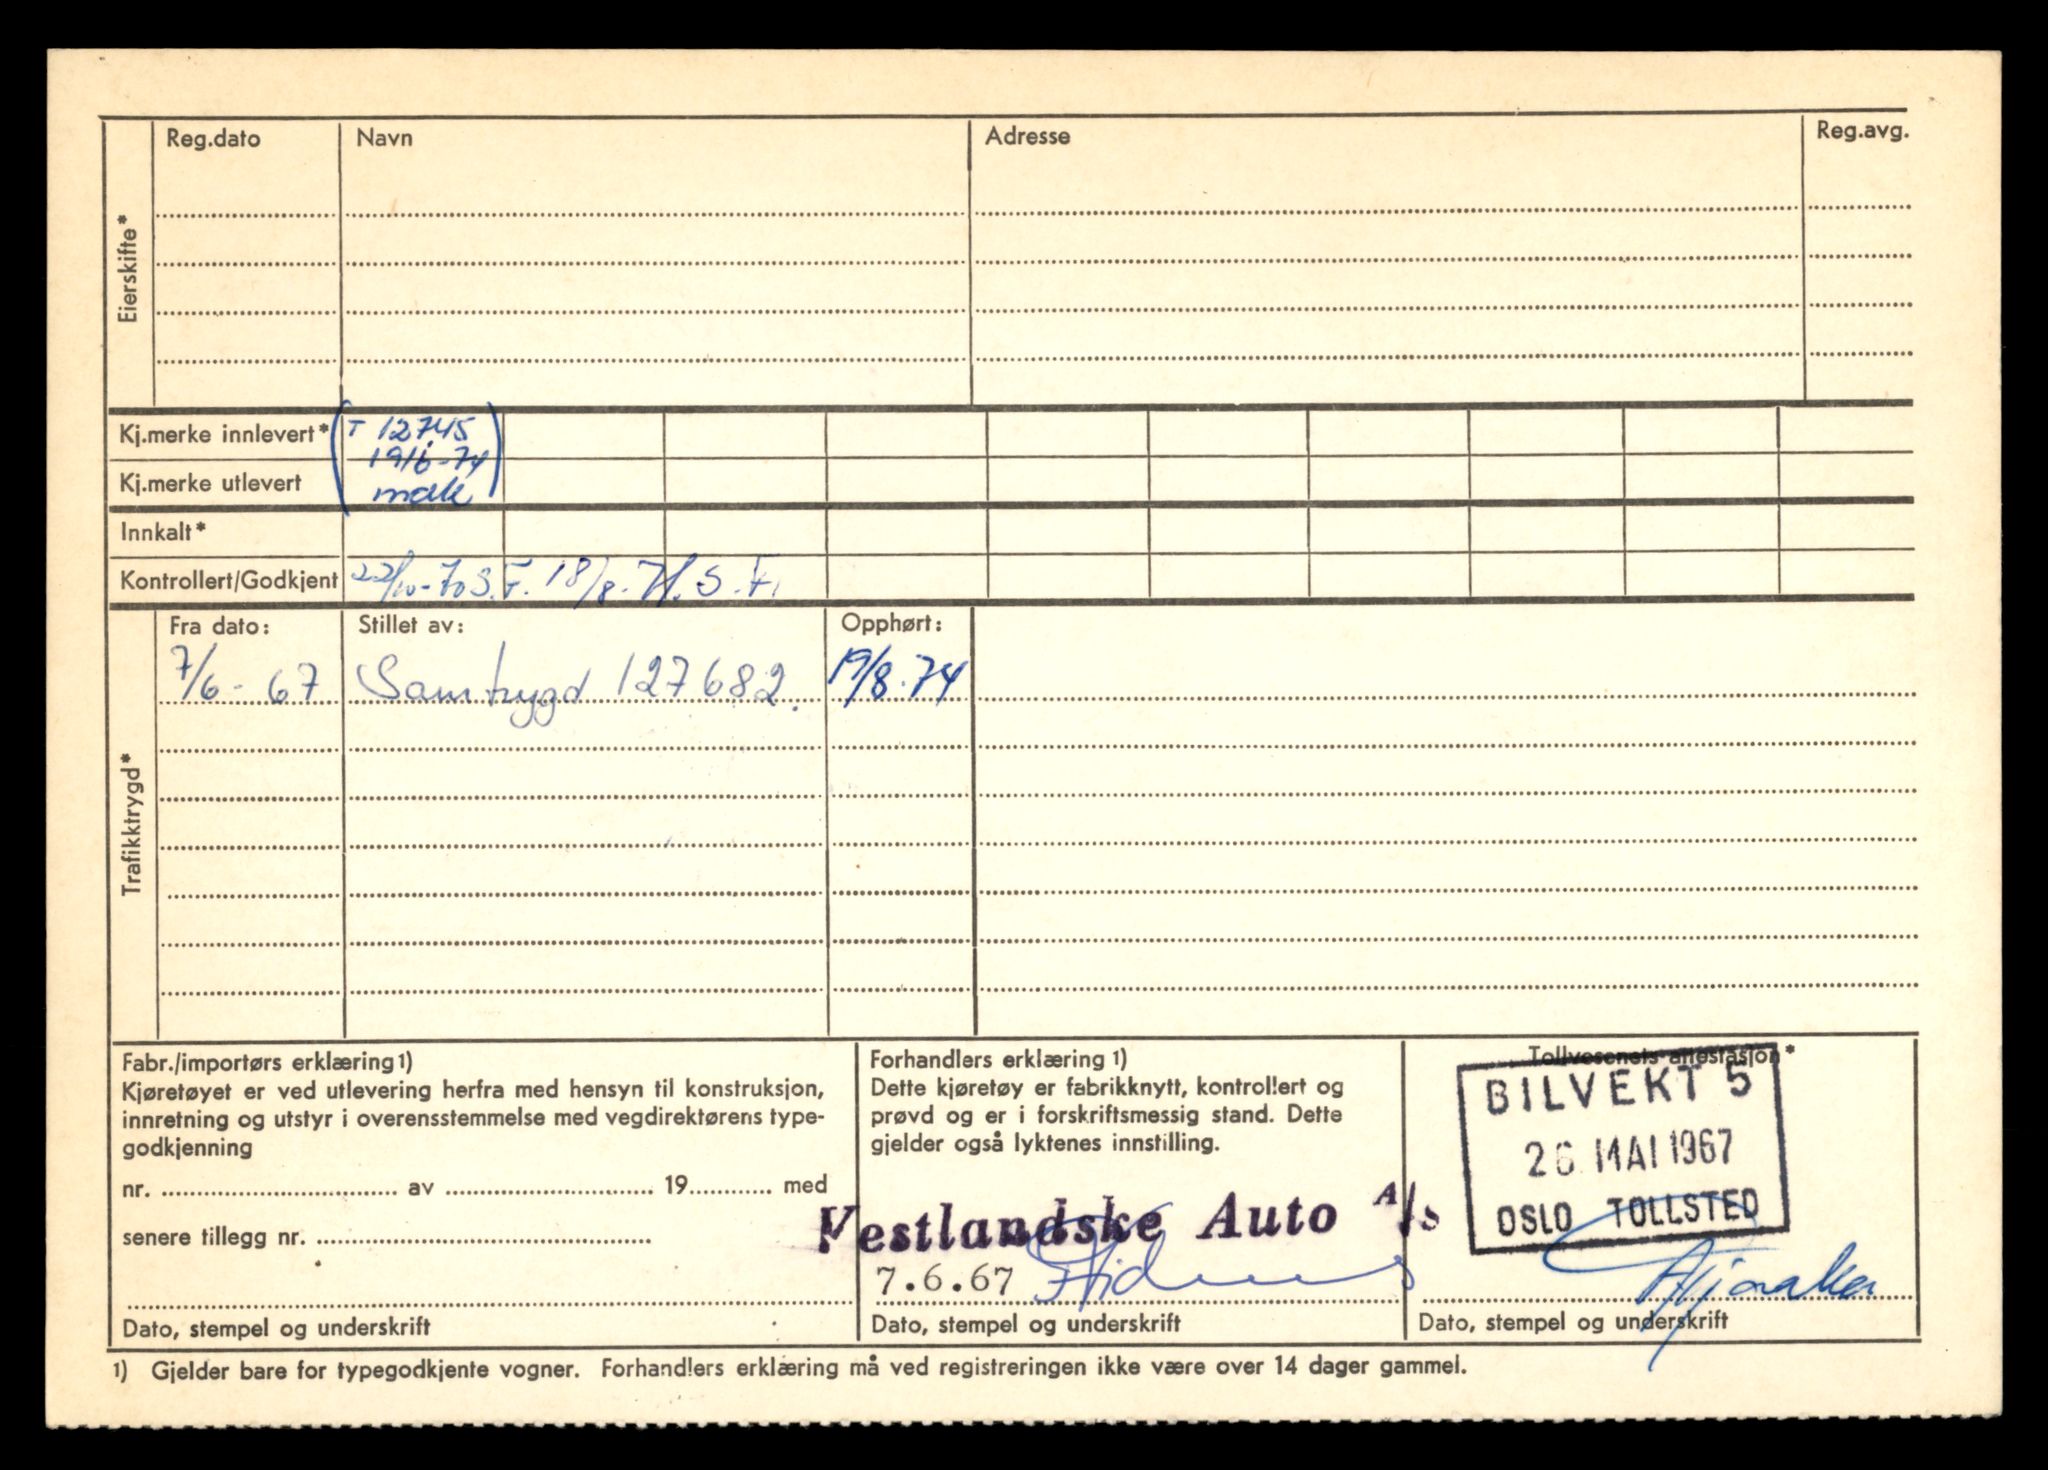 Reg.dato Navn Adresse Reg.avg.
Eierskifte*
Kj.merke innlevert* T 12745
19/6-74
Kj.merke utlevert mak
Innkalt*
Kontrollert/Godkjent 22/10-70 S.F. 18/8-71. S.F.
Fra dato: Stillet av: Opphørt:
7/6-67 Samtrygd 127682. 19/8.74
Trafikktrygd*
Fabr./importørs erklæring 1)
Kjøretøyet er ved utlevering herfra med hensyn til konstruksjon,
innretning og utstyr i overensstemmelse med vegdirektørens type-
godkjenning
nr. av 19 med
senere tillegg nr.
Dato, stempel og underskrift
Forhandlers erklæring 1)
Dette kjøretøy er fabrikknytt, kontrollert og
prøvd og er i forskriftsmessig stand. Dette
gjelder også lyktenes innstilling.
Vestlandske Auto A/s
7.6.67
Dato, stempel og underskrift
Tollvesenets attestasjon*
BILVEKT 5
26 MAI 1967
OSLO TOLLSTED
Dato, stempel og underskrift
1) Gjelder bare for typegodkjente vogner. Forhandlers erklæring må ved registreringen ikke være over 14 dager gammel.